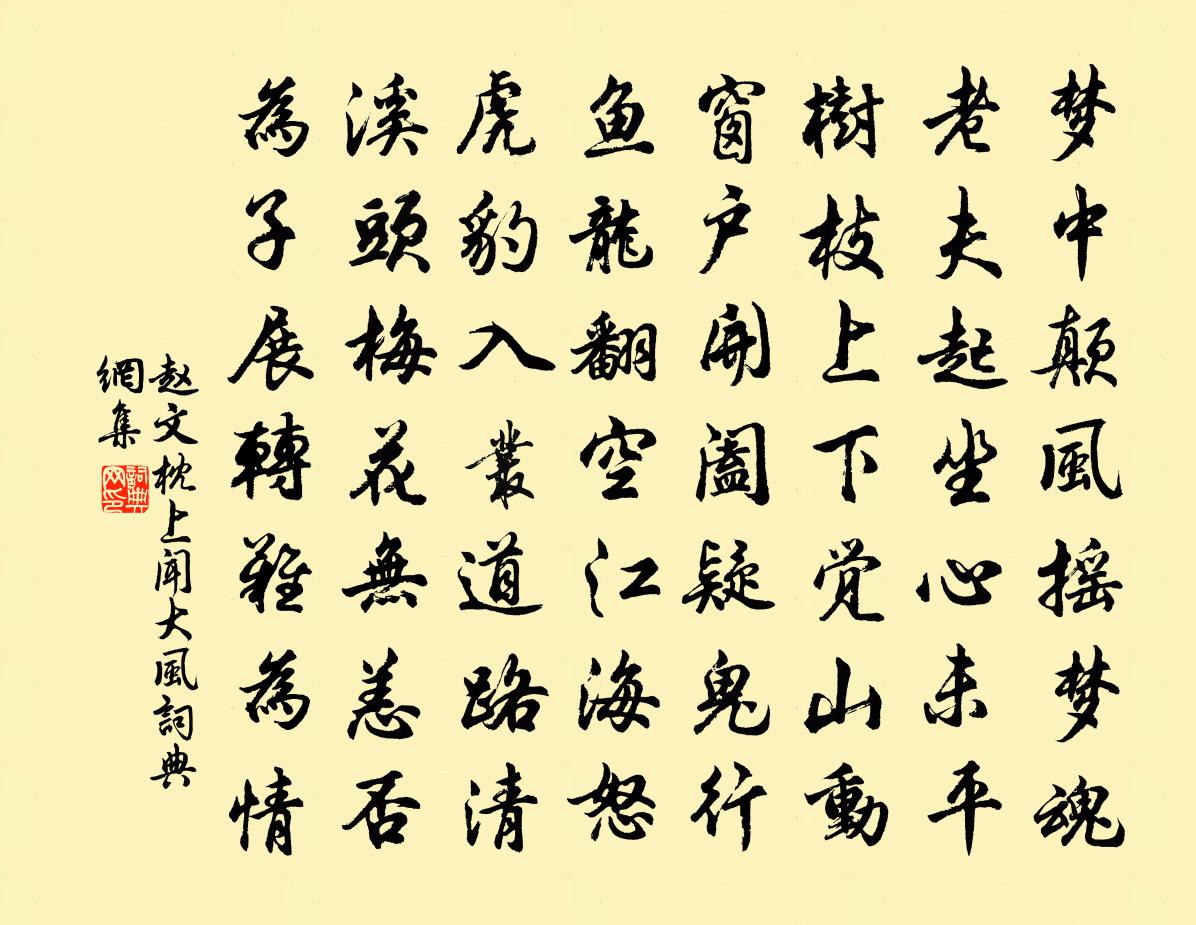 梦中颠風摇梦魂
老夫起坐心未平
樹枝上下觉山動
窗户開阖疑鬼行
鱼龍翻空江海怒
虎豹入叢道路清
溪頭梅花無恙否
為子展轉難為情
赵文枕上闻大風詞典
網集
詞典網印